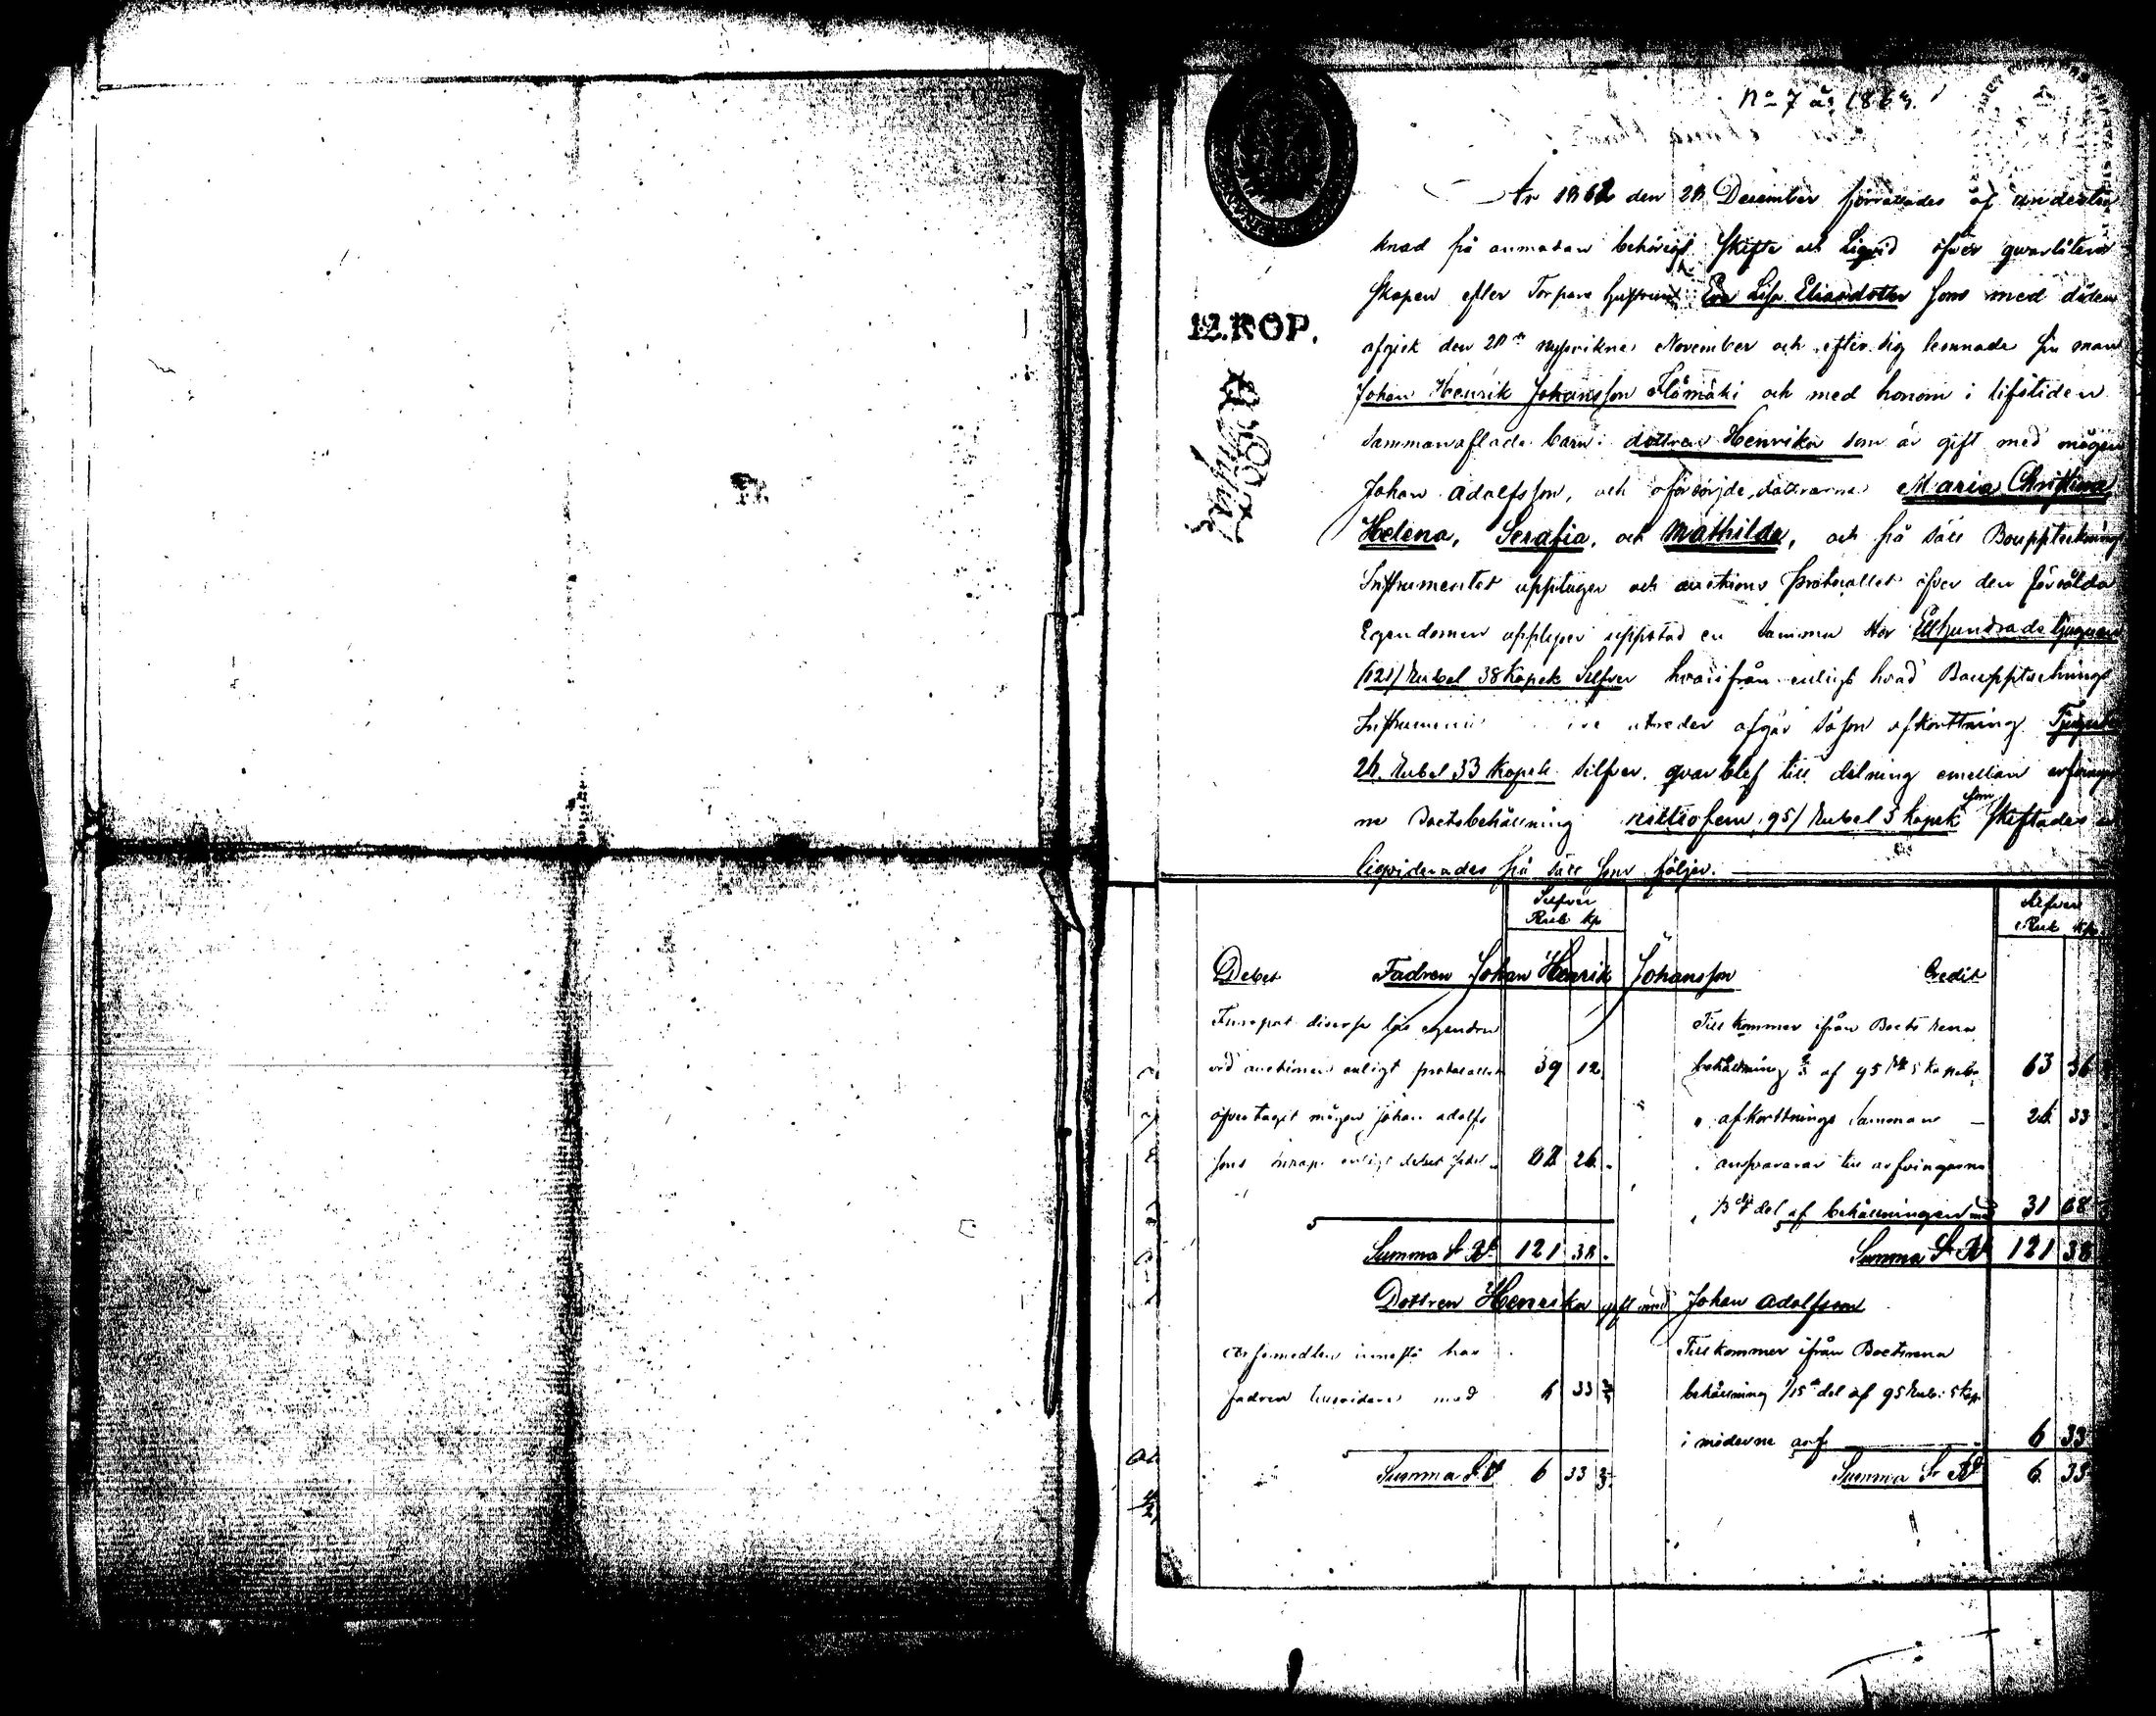 No 7 år 1863.
År 1862 den 28 December förrättades af undertec
knad på anmodan behörigt Skifte och Liqvid öfver qvarlåten
skapen efter Torpare hustrun Eva Lisa Eliasdotter som med döden
afgick den 28de November och efter sig lemnade sin man
12.KOP.
Johan Henrik Johansson Flåmäki och med honom i lifstiden
Sammanaflade barn: dottren Henrika som är gift med mågen
Johan Adolfsson, och oförsörjde döttrarne Maria Christina
Helena, Serafia, och Mathilda, och på sätt Bouppteknings
Instrumentet upptager och auctions protocollet öfver den försålda
Egendomen upplyser uppstod en Summa stor Etthundrade tjuguen
(121) Rubel 38 Kopek Silfver hvarifrån enligt hvad Bouppteknings
utreder afgår såsom afkorttning
26. Rubel 33 Kopek Silfver. qvarblef till delning emellan arfvingar
ne Boets behållning nittiofem (95) Rubel 5 Kopek som Skiftades och
liqviderades på sätt som följer.
Silfver
Rub Kp
Silfver
Rub Kp
Debet Fadren Johan Henrik Johansson Credit
Inropat diverse lös egendom
vid auctionen enligt protocollet 39 12
öfvertagit mågen Johan Adolfs
sons inrop enligt debet 82 26
Summa S. Rl 121 38
Tillkommer ifrån Boets rena
behållning 2/3 af 95 Rbl 5 kopek 63 36
" afkorttnings Summan 26 33
" ansvarar till arfvingarne
" 1/3 del af behållningen med 31 68
Summa S. Rl 121 38
Dottren Henrika gift med Johan Adolfsson
Arfsmedlen innestå hos
fadren med 6 33 2/3
Summa S. Rl 6 33 2/3
Tillkommer ifrån Boets rena
behållning 1/15 del af 95 Rub: 5 kop
i möderne arf 6 33
Summa S. Rl 6 33